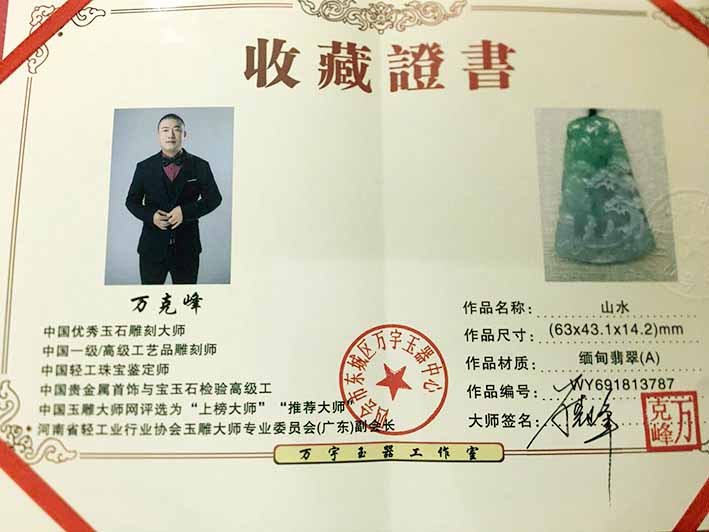 收藏證書
万克峰
中国优秀玉石雕刻大师
中国一级/高级工艺品雕刻师
中国轻工珠宝鉴定师
中国贵金属首饰与宝玉石检验高级工
中国玉雕大师网评选为“上榜大师”“推荐大师”
河南省轻工业行业协会玉雕大师专业委员会(广东)副会长
作品名称: 山水
作品尺寸: (63x43.1x14.2)mm
作品材质: 缅甸翡翠(A)
作品编号: WY691813787
大师签名: 万克峰
万克峰
四会市东城区万宇玉器中心
万宇玉器工作室